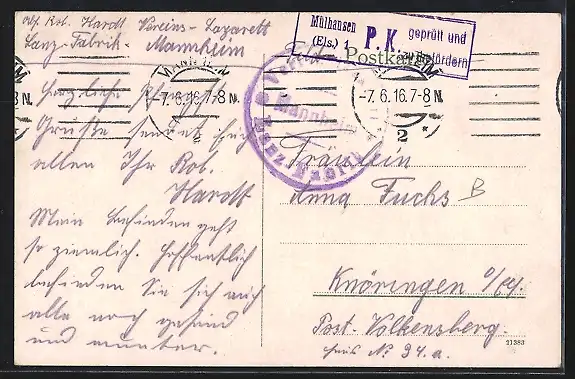 Abs. Rob. Hardt Vereins-Lazarett
Lanz-Fabrik - Mannheim
Mülhausen
(Els.) 1
P.K.
geprüft und
zu befördern
Postkarte
MANNHEIM
-7.6.16.7-8N.
2
MANNHEIM
-7.6.16.7-8N.
2
Mannheim
Lanz-Fabrik
Herzliche
Grüße sendet Euch
allen Ihr Rob.
Hardt
Mein befinden geht
so ziemlich. Hoffentlich
befinden Sie sich auch
alle noch gesund
und munter.
Fräulein
Anna Fuchs B
Knöringen o/Els.
Post-Volkensberg.
Haus No 94.a.
21383